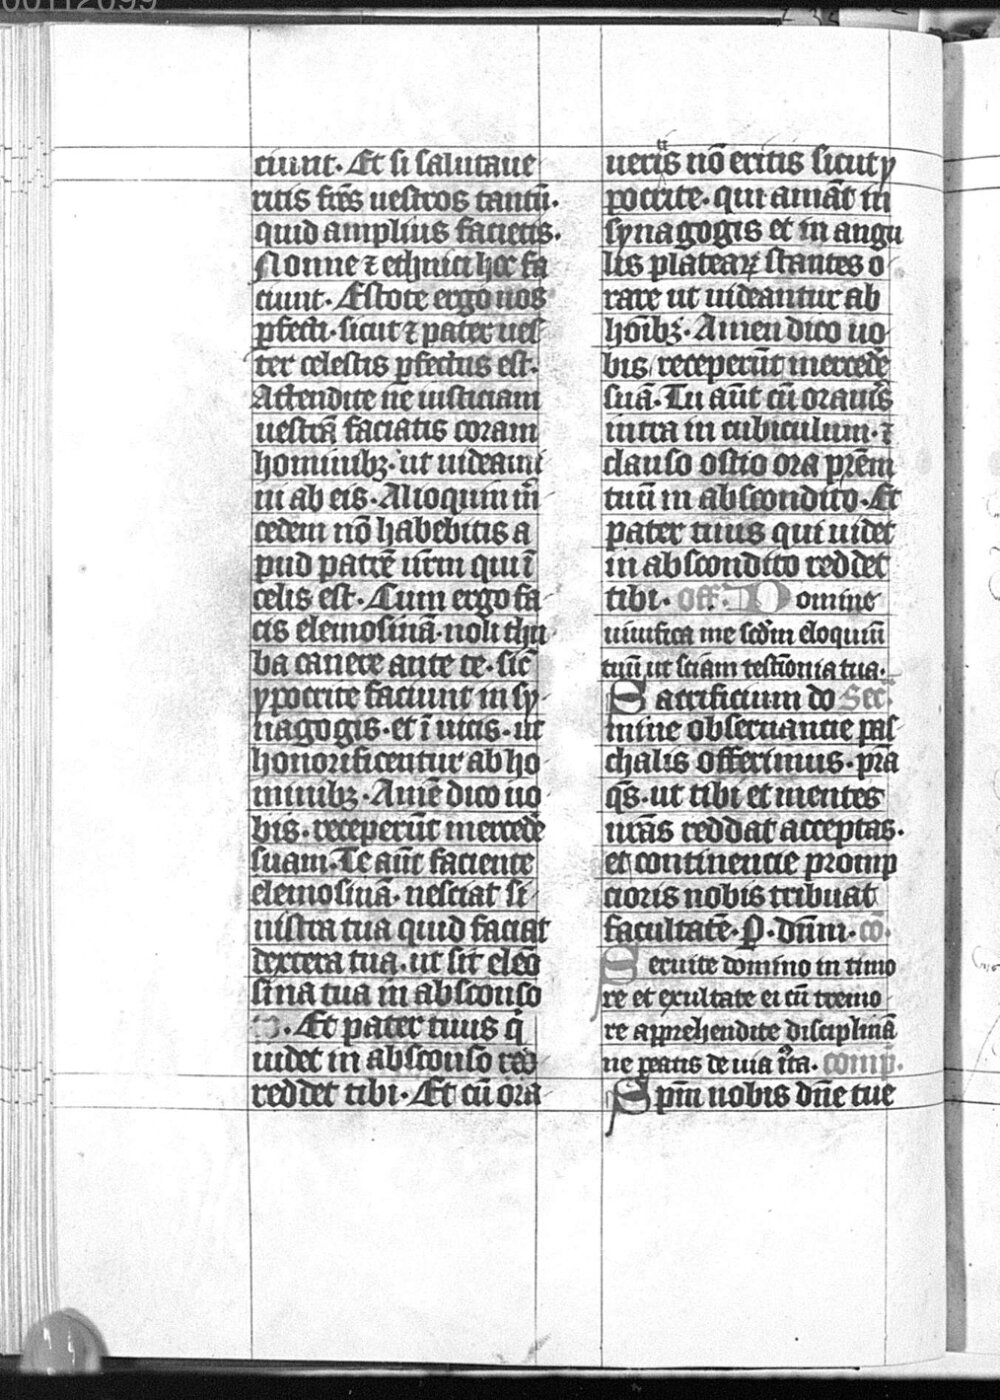 ciunt. Et si salutaue
ritis frēs uestros tantū.
quid amplius facietis.
Nonne ⁊ ethnici hoc fa
ciunt. Estote ergo uos
ꝑfecti. sicut ⁊ pater ues
ter celestis ꝑfectus est.
Attendite ne iusticiam
uestrā faciatis coram
hominibꝫ. ut uideami
ni ab eis. Alioquin m̄
cedem nō habebitis a
pud patrē ur̄m qui ī
celis est. Cum ergo fa
cis elemosinā. noli thu
ba canere ante te. sic̄
ypocrite faciunt in sy
nagogis. et ī uicis. ut
honorificentur ab ho
minibꝫ. Amē dico uo
bis. receperūt mercedē
suam. Te aūt faciente
elemosinā. nesciat si
nistra tua quid faciat
dextera tua. ut sit eleō
sina tua in absconso
. Et pater tuus q̄
uidet in absconso
reddet tibi. Et cū ora
ueris nō eritis sicut y
pocrite. qui amāt in
synagogis et in angu
lis plateaꝝ stantes o
rare ut uideantur ab
hoībꝫ. Amen dico uo
bis receperūt mercedē
suā. Tu aūt cū oraueris
intra in cubiculum. ⁊
clauso ostio ora prēm
tuū in abscondito. Et
pater tuus qui uidet
in abscondito reddet
tibi. Off. Domine
uiuifica me scdm̄ eloquiū
tuū ut sciam testīonia tua.
Sacrificium do Sec̄.
mine obseruantie pas
chalis offerimus. prā
qs̄. ut tibi et mentes
nrās reddat acceptas.
et continencie promp
cioris nobis tribuat
facultatē. P. dn̄m. cō.
Seruite domino in timo
re et exultate ei cū tremo
re apprehendite disciplinā
ne peatis de uia iusta. comp̄.
Spm̄ nobis dn̄e tue